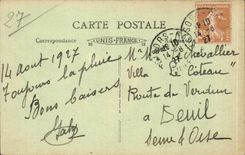 27
CARTE POSTALE
Correspondance
UNIS-FRANCE
14 août 1927
Toujours la pluie
Bons baisers
Mr Mme Chevallier
Villa "Le Coteau"
Route de Verdun
à Deuil
Seine & Oise